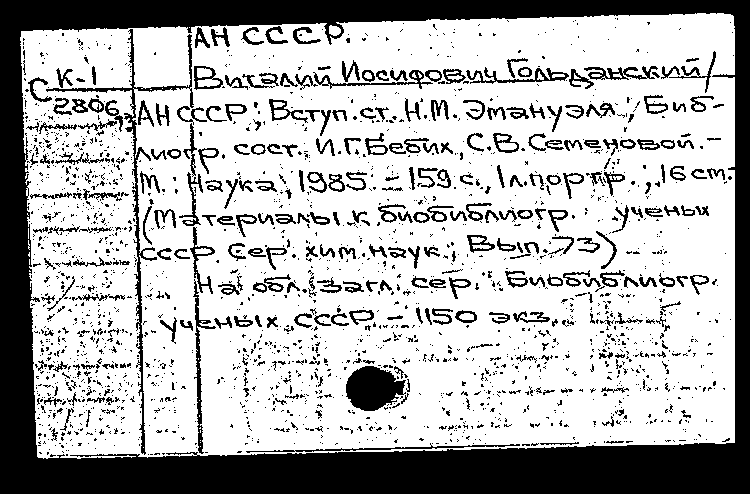 АН СССР.
К-1
С
2806
73
Виталий Иосифович Гольданский /
АН СССР; Вступ. ст. Н.М. Эмануэля; Биб-
лиогр. сост. И.Г. Бебих, С.В. Семеновой. -
М.: Наука, 1985. - 159 с., 1 л. портр.; 16 см. -
(Материалы к биобиблиогр. ученых
СССР. Сер. хим. наук.; Вып. 73)
На обл. загл. сер.: Биобиблиогр.
ученых СССР - 1150 экз.